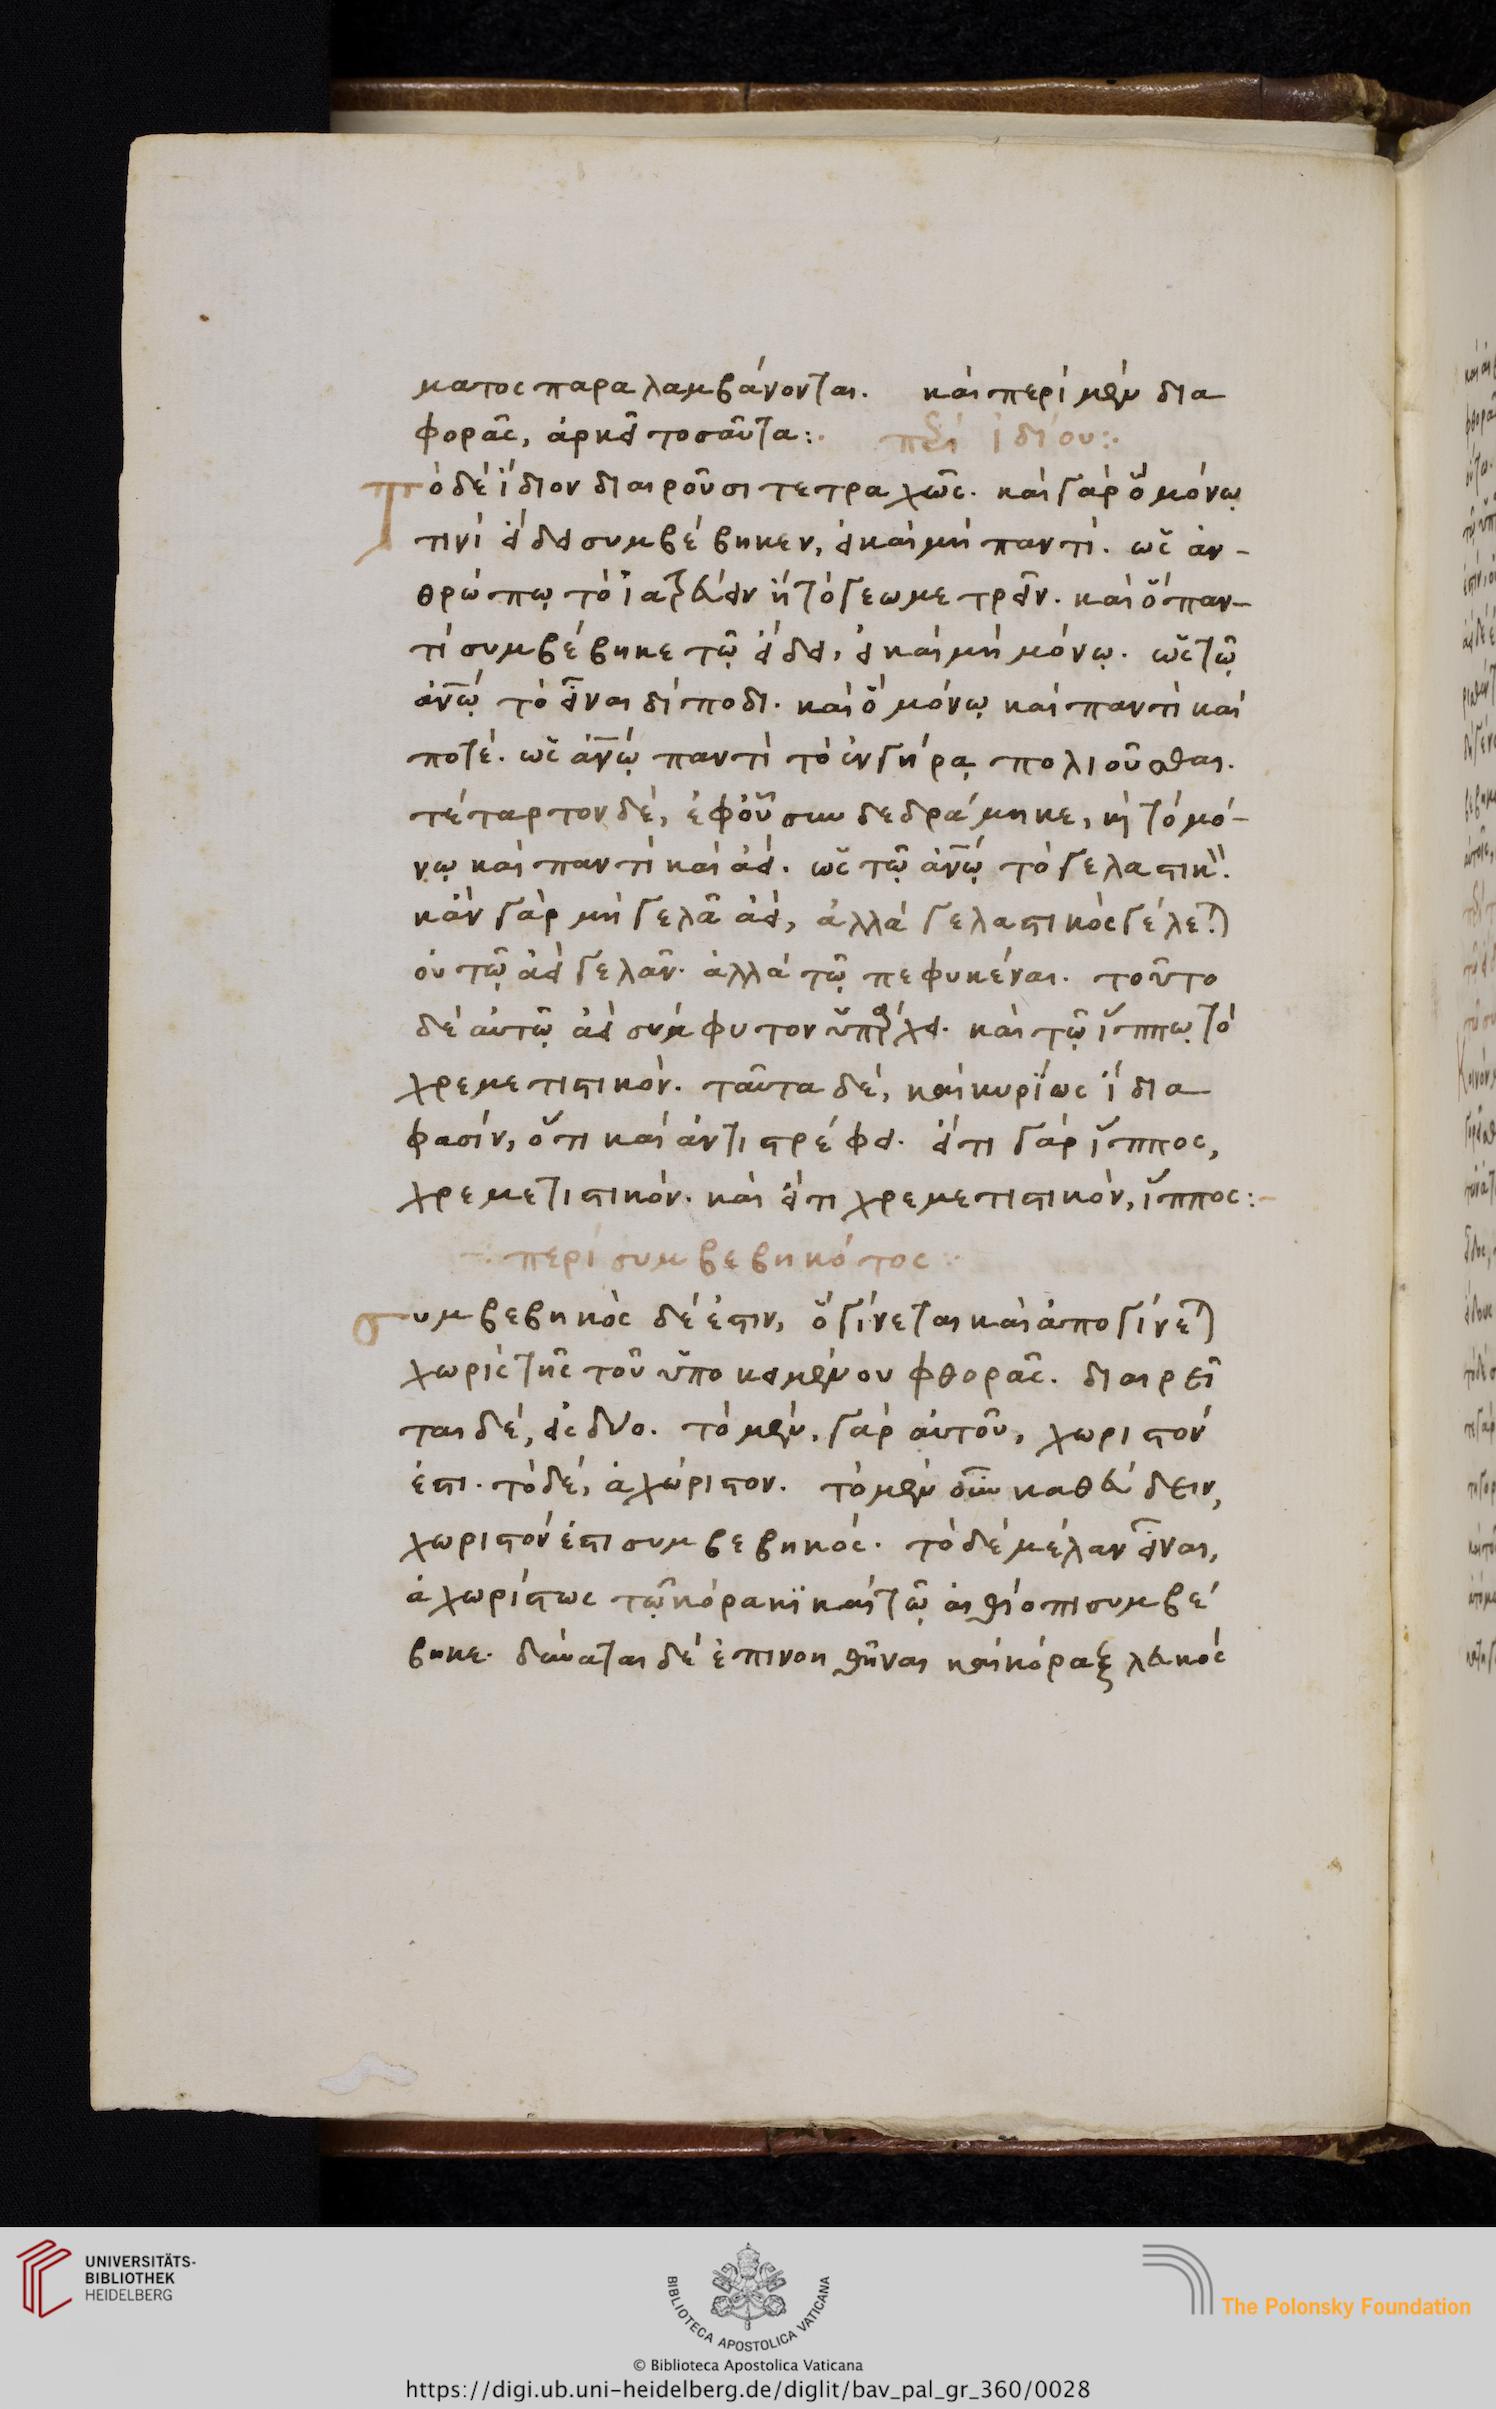 ματος παραλαμβάνονται. καὶ περὶ μὲν δια
φορᾶς, ἀρκεῖ τοσαῦτα:. περὶ ἰδίου:.
Τὸ δὲ ἴδιον διαιροῦσι τετραχῶς. καὶ γὰρ ὃ μόνῳ
τινὶ εἴδει συμβέβηκεν, εἰ καὶ μὴ παντί. ὡς ἀν-
θρώπῳ τὸ ἰατρεύειν ἢ τὸ γεωμετρεῖν. καὶ ὃ παν-
τὶ συμβέβηκε τῷ εἴδει, εἰ καὶ μὴ μόνῳ. ὡς τῷ
ἀν̅ω̅ τὸ εἶναι δίποδι. καὶ ὃ μόνῳ καὶ παντὶ καί
ποτέ. ὡς ἀν̅ω̅ παντὶ τὸ ἐν γήρᾳ πολιοῦσθαι.
τέταρτον δέ, ἐφ' οὗ συνδεδράμηκε, κὴ τὸ μό-
νῳ καὶ παντὶ καὶ ἀεί. ὡς τῷ ἀν̅ω̅ τὸ γελαστικόν.
κἂν γὰρ μὴ γελᾶ ἀεί, ἀλλὰ γελαστικὸς λέγεται
οὐ τῷ ἀεὶ γελᾶν. ἀλλὰ τῷ πεφυκέναι. τοῦτο
δὲ αὐτῷ ἀεὶ σύμφυτον ὑπάρχει. καὶ τῷ ἵππῳ τὸ
χρεμετιστικόν. ταῦτα δέ, καὶ κυρίως ἴδια
φασίν, ὅτι καὶ ἀντιστρέφει. εἴ τι γὰρ ἵππος,
χρεμετιστικόν. καὶ εἴ τι χρεμετιστικόν, ἵππος:-
περὶ συμβεβηκότος:
συμβεβηκὸς δέ ἐστιν, ὃ γίνεται καὶ ἀπογίνεται
χωρὶς τῆς τοῦ ὑποκειμένου φθορᾶς. διαιρεῖ
ται δέ, εἰς δύο. τὸ μὲν, γὰρ αὐτοῦ, χωριστόν
ἐστι. τὸ δέ, ἀχώριστον. τὸ μὲν οὖν καθεύδειν,
χωριστόν ἐστι συμβεβηκός. τὸ δὲ μέλαν εἶναι,
ἀχωρίστως τῷ κόρακι καὶ τῷ αἰθίοπι συμβέ
βηκε. δύναται δὲ ἐπινοηθῆναι καὶ κόραξ λευκός
UNIVERSITÄTS-
BIBLIOTHEK
HEIDELBERG
BIBLIOTECA APOSTOLICA VATICANA
The Polonsky Foundation
© Biblioteca Apostolica Vaticana
https://digi.ub.uni-heidelberg.de/diglit/bav_pal_gr_360/0028